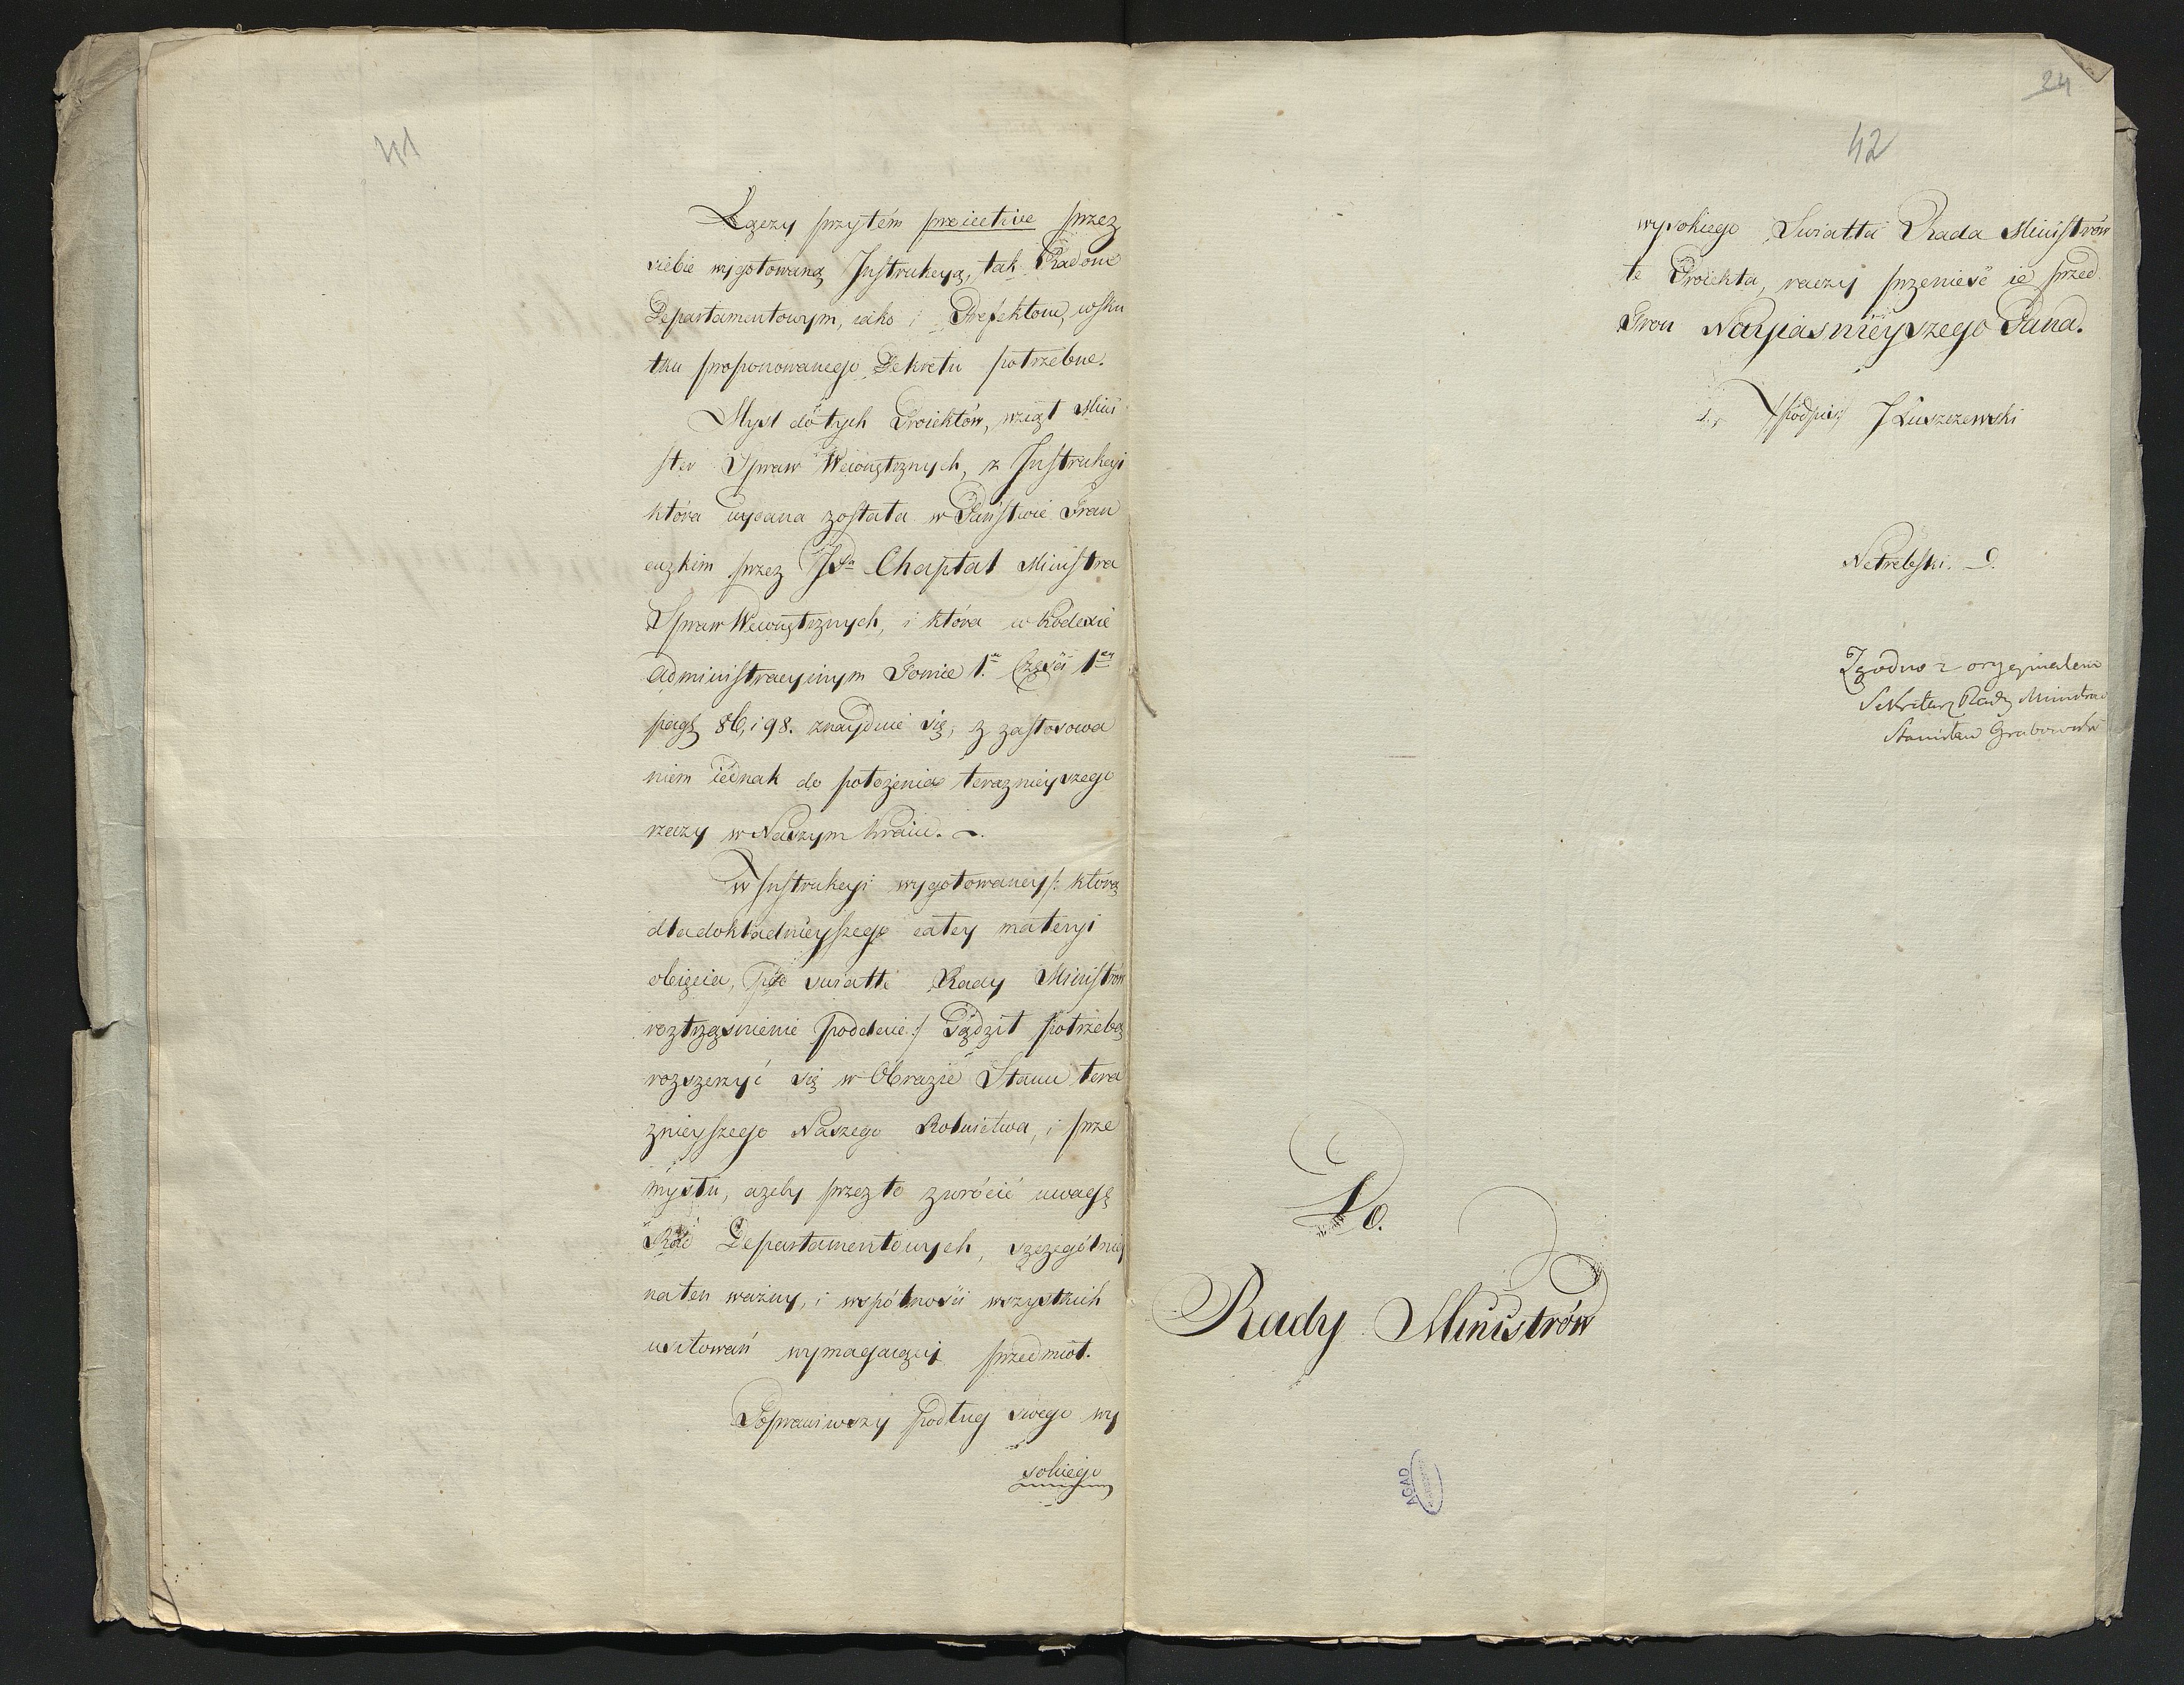 41
Łączy przytém proiective przez
siebie wygotowaną Instrukcyą, tak Radom
Departamentowym, iako i Prefektom, wsku
tku proponowanego Dekretu potrzebne.
Myśl do tych Proiektów, wziął Mini
ster Spraw Wewnętrznych, z Instrukcyi
która wydana została w Państwie Fran
cuzkim przez JPa Chaptal Ministra
Spraw Wewnętrznych, i która w kodexie
administracyinym Tomie 1. Części 1ey
pag. 86, i 98. znayduie się, z zastosowa
niem iednak do położenia teraznieyszego
rzeczy w Naszym kraiu.
W Instrukcyi wygotowaney /: którą
dla dokładnieyszego całey materyi
obięcia, pod światłe Rady Ministrów
roztrząśnienie poddaie :/ Sądził potrzebą
rozszerzyć się w Obrazie Stanu tera
znieyszego Naszego Rolnictwa, i prze
mysłu, ażeby przez to zwrócić uwagę
Rad Departamentowych, szczególniey
na ten ważny, i wspólności wszystkich
usiłowań wymagaiący przedmiot.
Poprawiwszy podług swego wy
sokiego
24
42
wysokiego Swiatła Rada Ministrów
te Proiekta, raczy przenieść ie przed
Tron Nayiaśnieyszego Pana.
/podpis/ J Łuszczewski
Netrebski.
Zgodno z oryginałem
Sekretarz Rady Ministrów
Stanisław Grabowski
Do.
Rady Ministrów
AGAD